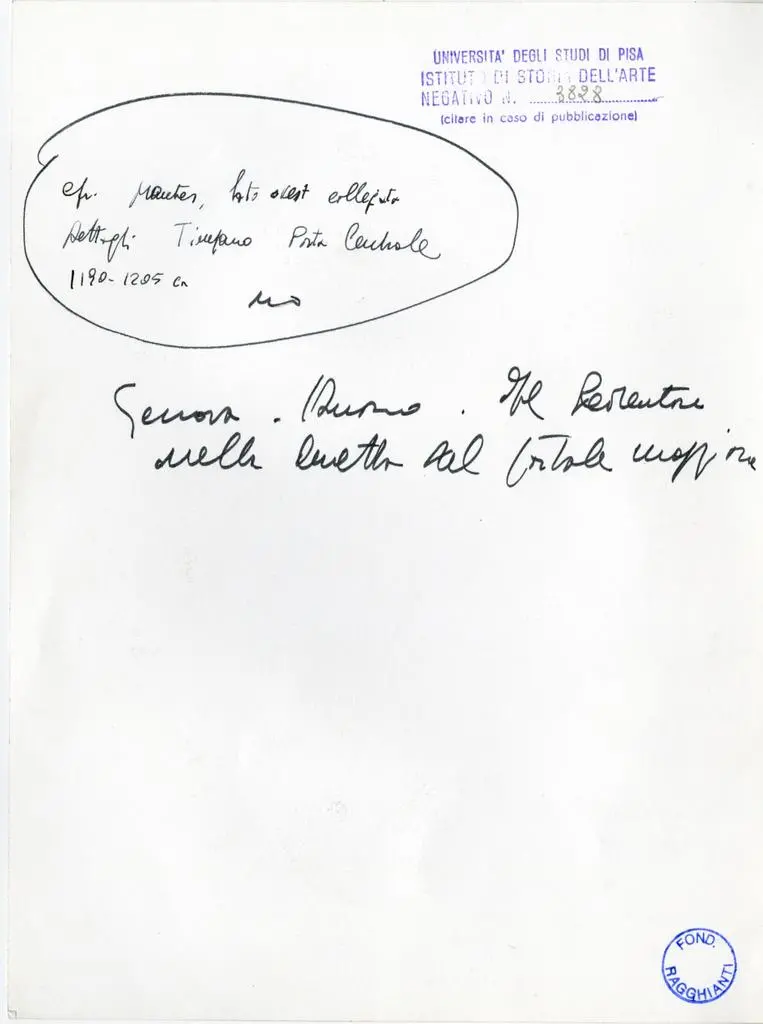 UNIVERSITA' DEGLI STUDI DI PISA
ISTITUTO DI STORIA DELL'ARTE
NEGATIVO N. 3828
(citare in caso di pubblicazione)
cfr. Mantes, lato ovest collegiata
Dettagli Timpano Porta Centrale
1190-1205 ca
no
Genova . Duomo . Il Redentore
nella lunetta del portale maggiore
FOND.
RAGGHIANTI